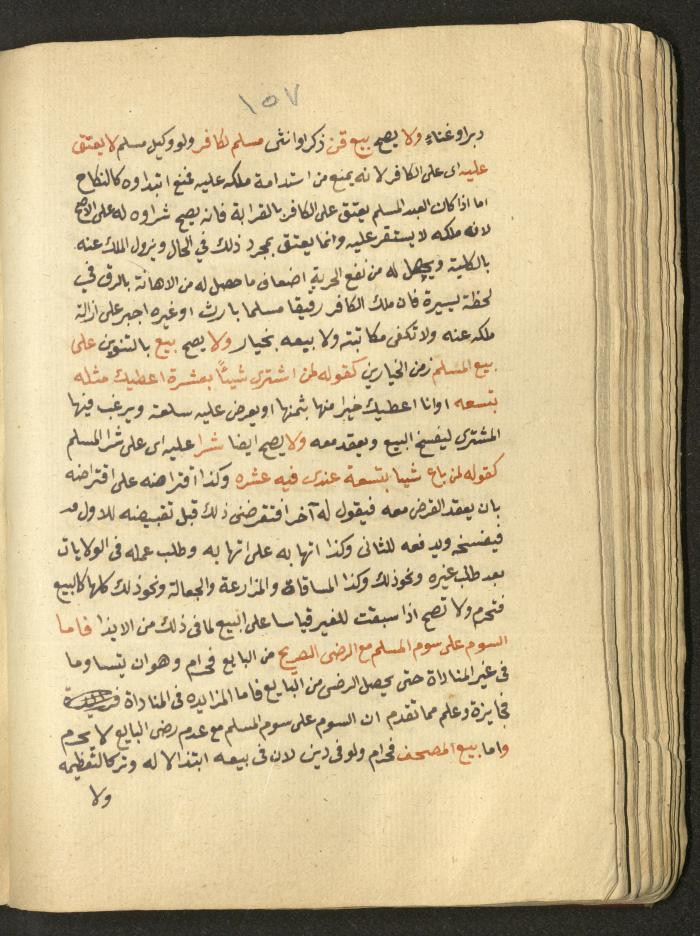 ١٥٧
دبر او غناء ولا يصح بيع قن ذكر او انثى مسلم لكافر ولو وكيل مسلم لا يعتق
عليه اى على الكافر لانه يمنع من استدامة ملكه عليه فمنع ابتداوه كالنكاح
اما اذا كان العبد المسلم يعتق على الكافر بالقرابة فانه يصح شراوه له على الاصح
لانه ملكه لا يستقر عليه وانما يعتق بمجرد ذلك في الحال ويزول الملك عنه
بالكلية ويحصل له من نفع الحرية اضعاف ما حصل له من الاهانة بالرق في
لحظة يسيرة فان ملك الكافر رقيقا مسلما بارث او غيره اجبر على ازالة
ملكه عنه ولا تكفى مكاتبته ولا بيعه بخيار ولا يصح بيع بالتنوين على
بيع المسلم زمن الخيارين كقوله لمن اشترى شيئًا بعشرة اعطيك مثله
بتسعه او انا اعطيك خيرا منها بثمنها او يعرض عليه سلعة ويرغب فيها
المشتري ليفسخ البيع ويعقد معه ولا يصح ايضا شرا عليه اى على شرا المسلم
كقوله لمن باع شيا بتسعة عندى فيه عشره وكذا اقتراضه على اقتراضه
بان يعقد القرض معه فيقول له آخر اقترضنى ذلك قبل تقبيضه للاول
فيفسخه ويدفعه للثانى وكذا اتهابه على اتهابه وطلب عمله فى الولايات
بعد طلب غيره ونحو ذلك وكذا المساقاة والمزارعة والجعالة ونحو ذلك كلها كالبيع
فتحرم ولا تصح اذا سبقت للغير قياسا على البيع لما فى ذلك من الايذا فاما
السوم على سوم المسلم مع الرضى الصريح من البايع فحرام وهو ان يتساوما
فى غير المناداة حتى يحصل الرضى من البايع فاما المزايده فى المناداة
فجايزة وعلم مما تقدم ان السوم على سوم المسلم مع عدم رضى البايع لا يحرم
واما بيع المصحف فحرام ولو فى دين لان فى بيعه ابتذالا له وترك التعظيمه
ولا